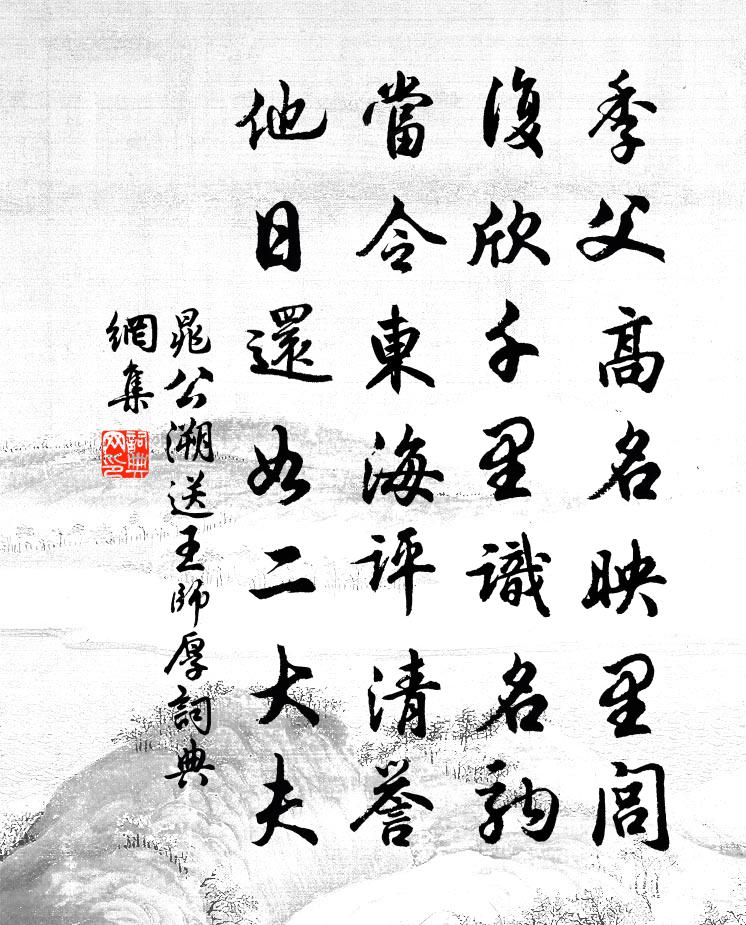 季父高名映里閭
復欣千里識名駒
當令東海評清譽
他日還如二大夫
晁公溯送王師厚詞典
網集
詞典網印